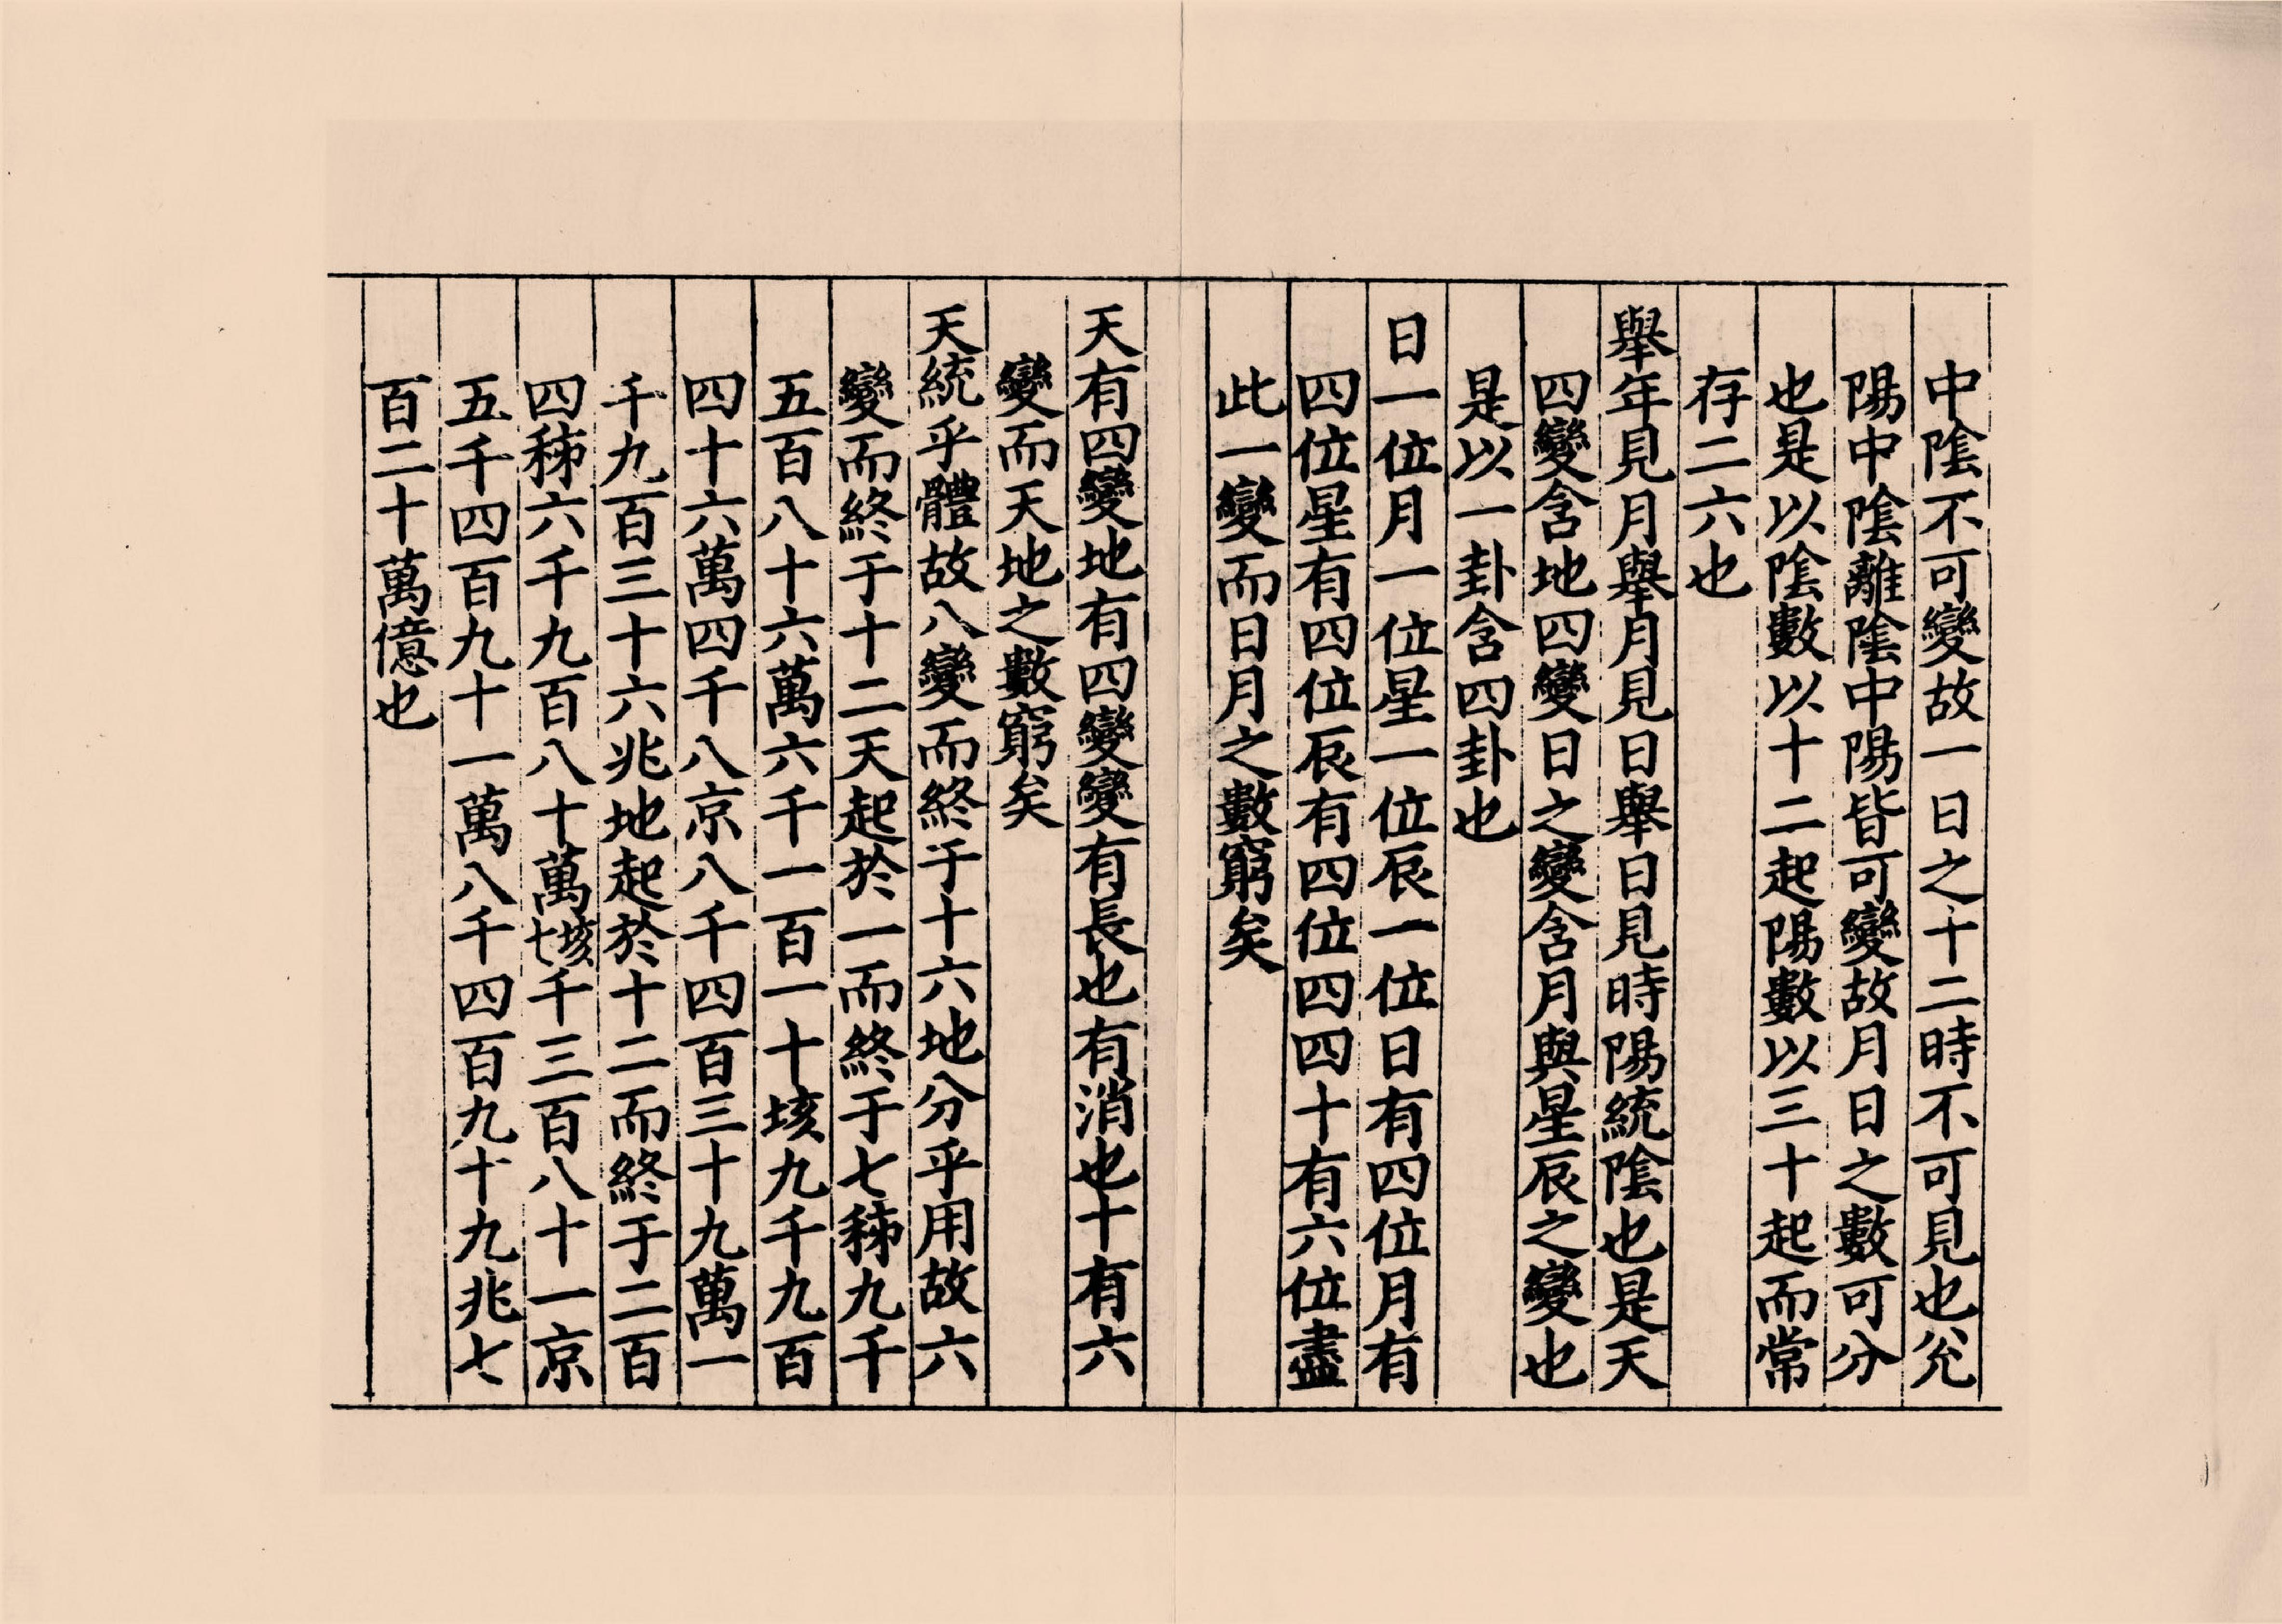 中陰不可變故一日之十二時不可見也兊
陽中陰離陰中陽皆可變故月日之數可分
也是以陰數以十二起陽數以三十起而常
存二六也
舉年見月舉月見日舉日見時陽統陰也是天
四變含地四變日之變含月與星辰之變也
是以一卦含四卦也
日一位月一位星一位辰一位日有四位月有
四位星有四位辰有四位四四十有六位盡
此一變而日月之數窮矣
天有四變地有四變變有長也有消也十有六
變而天地之數窮矣
天統乎體故八變而終于十六地分乎用故六
變而終于十二天起於一而終于七秭九千
五百八十六萬六千一百一十垓九千九百
四十六萬四千八京八千四百三十九萬一
千九百三十六兆地起於十二而終于二百
四秭六千九百八十萬七垓千三百八十一京
五千四百九十一萬八千四百九十九兆七
百二十萬億也